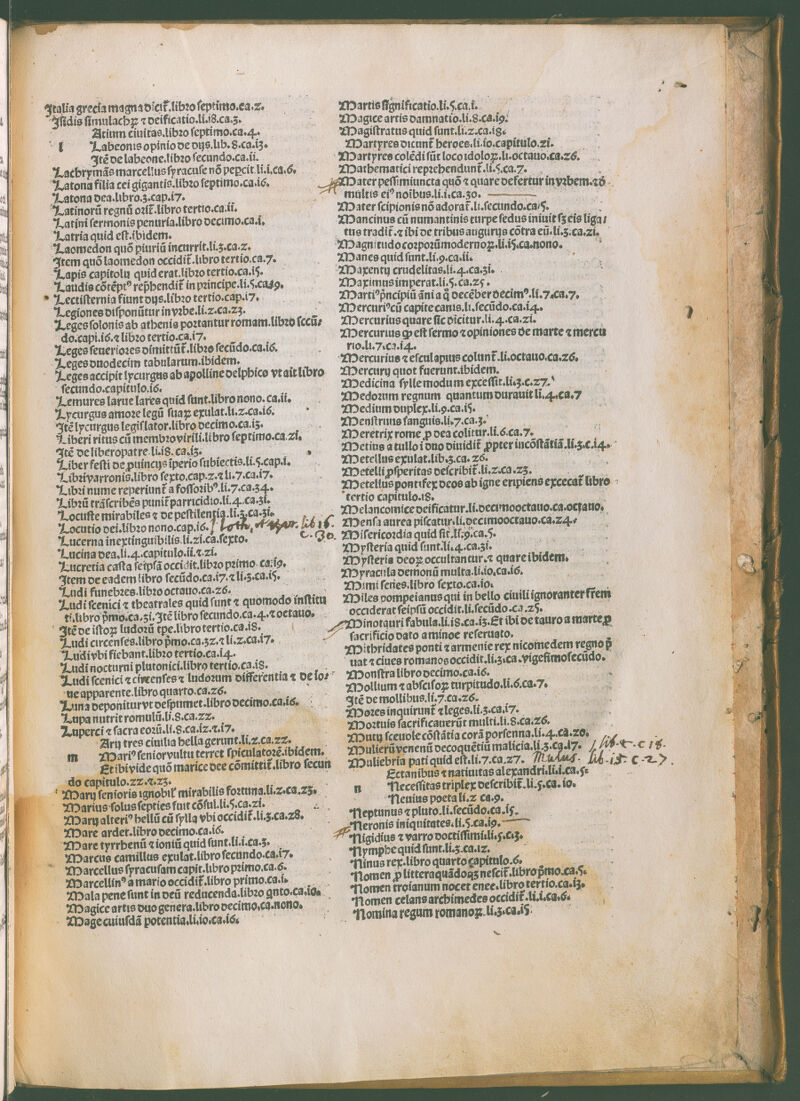 Italia grecia magna dicit᷑.libro septimo.ca.2.
Isidis simulachꝝ ⁊ deificatio.li.18.ca.3.
Atium ciuitas.libro septimo.ca.4.
l Labeonis opinio de dijs.lib.8.ca.13.
Itẽ de labeone.libro secundo.ca.ii.
Lachrymãs marcellus syracuse nõ pepcit.li.i.ca.6.
Latona filia cei gigantis.libro septimo.ca.16.
Latona dea.libro.3.cap.17.
Latinorũ regnũ orit᷑.libro tertio.ca.ii.
Latini sermonis penuria.libro decimo.ca.i.
Latria quid est.ibidem.
Laomedon quõ piuriũ incurrit.li.3.ca.2.
Item quõ laomedon occidit᷑.libro tertio.ca.7.
Lapis capitolij quid erat.libro tertio.ca.15.
Laudis cõtẽptꝰ rep̃hendit᷑ in principe.li.5.ca.19.
Lectisternia fiunt dijs.libro tertio.cap.17.
Legiones disponũtur in vrbe.li.2.ca.23.
Leges solonis ab athenis portantur romam.libro secũ/
do.capi.16.⁊ libro tertio.ca.17.
Leges seueriores dimittũt᷑.libro secũdo.ca.16.
Leges duodecim tabularum.ibidem.
Leges accipit lycurgus ab apolline delphico vt ait libro
secundo.capitulo.16.
Lemures larue lares quid sunt.libro nono.ca.ii.
Lycurgus amore legũ suaꝝ exulat.li.2.ca.16.
Itẽ lycurgus legislator.libro decimo.ca.13.
Liberi ritus cũ membro virili.libro septimo.ca.21.
Itẽ de libero patre.li.18.ca.13.
Liber festi de puincijs iperio subiectis.li.5.cap.i.
Libri varronis.libro sexto.cap.2.⁊ li.7.ca.17.
Libri nume reperiunt᷑ a fossoribꝰ.li.7.ca.34.
Librũ trãscribẽs punit᷑ parricidio.li.4.ca.31.
Locuste mirabiles ⁊ de pestilentia.li.3.ca.31.
Locutio dei.libro nono.cap.16. lib 16.
c. 30.
Lucerna inextinguibilis.li.21.ca.sexto.
Lucina dea.li.4.capitulo.ii.⁊.21.
Lucretia casta seipsã occidit.libro primo.ca.19.
Item de eadem libro secũdo.ca.17.⁊ li.3.ca.15.
Ludi funebres.libro octauo.ca.26.
Ludi scenici ⁊ theatrales quid sunt ⁊ quomodo institu
ti.libro p̃mo.ca.31.Itẽ libro secundo.ca.4.⁊ octauo.
Itẽ de istoꝝ ludorũ tpe.libro tertio.ca.18.
Ludi circenses.libro p̃mo.ca.32.⁊ li.2.ca.17.
Ludi vbi fiebant.libro tertio.ca.14.
Ludi nocturni plutonici.libro tertio.ca.18.
Ludi scenici ⁊ circenses ⁊ ludorum differentia ⁊ de ior
ue apparente.libro quarto.ca.26.
Luna deponitur vt despumet.libro decimo.ca.16.
Lupa nutrit romulũ.li.8.ca.22.
Luperci ⁊ sacra eorũ.li.8.ca.12.⁊.17.
Arij tres ciuilia bella gerunt.li.2.ca.22.
m Mariꝰ senior vultu terret spiculatorẽ.ibidem.
Et ibi vide quõ marice dee cõmittit᷑.libro secun
do capitulo.22.⁊.23.
Marij senioris ignobil' mirabilis fortuna.li.2.ca.23.
Marius solus septies fuit cõsul.li.5.ca.21.
Marij alteriꝰ bellũ cũ sylla vbi occidit᷑.li.3.ca.28.
Mare ardet.libro decimo.ca.16.
Mare tyrrhenũ ⁊ ioniũ quid sunt.li.i.ca.3.
Marcus camillus exulat.libro secundo.ca.17.
Marcellus syracusam capit.libro primo.ca.6.
Marcellinꝰ a mario occidit᷑.libro primo.ca.i.
Mala pene sunt in deũ reducenda.libro qnto.ca.10.
Magice artis duo genera.libro decimo.ca.nono.
Mage cuiusdã potentia.li.10.ca.16.
Martis significatio.li.5.ca.i.
Magice artis damnatio.li.8.ca.19.
Magistratus quid sunt.li.2.ca.18.
Martyres dicunt᷑ heroes.li.10.capitulo.21.
Martyres colẽdi sũt loco idoloꝝ.li.octauo.ca.26.
Mathematici reprehendunt᷑.li.5.ca.7.
Mater pessimiuncta quõ ⁊ quare defertur in vrbem.⁊ d
multis eiꝰ noĩbus.li.i.ca.30.
Mater scipionis nõ adorat᷑.li.secundo.ca.5.
Mancinus cũ numantinis turpe fedus iniuit sꝫ eis liga/
tus tradit᷑.⁊ ibi de tribus augurijs cõtra eũ.li.3.ca.21.
Magnitudo corporũ modernoꝝ.li.15.ca.nono.
Manes quid sunt.li.9.ca.ii.
Maxentij crudelitas.li.4.ca.31.
Maximus imperat.li.5.ca.25.
Martiꝰ p̃ncipiũ ãni a q̃ decẽber decimꝰ.li.7.ca.7.
Mercuriꝰ cũ capite canis.li.secũdo.ca.14.
Mercurius quare sic dicitur.li.4.ca.21.
Mercurius ꝙ est sermo ⁊ opiniones de marte ⁊ mercu
rio.li.7.ca.14.
Mercurius ⁊ esculapius colunt᷑.li.octauo.ca.26.
Mercurij quot fuerunt.ibidem.
Medicina sylle modum excessit.li.3.c.27.
Medorum regnum quantum durauit li.4.ca.7
Medium duplex.li.9.ca.15.
Menstruus sanguis.li.7.ca.3.
Meretrix rome ꝓ dea colitur.li.6.ca.7.
Metius a tullo i duo diuidit᷑ ꝓpter incõstãtiã.li.3.c.14.
Metellus exulat.lib.3.ca.26.
Metelli ꝓsperitas describit᷑.li.2.ca.23.
Metellus pontifex deos ab igne eripiens excecat᷑ libro
tertio capitulo.18.
Melancomice deificatur.li.decimooctauo.ca.octauo.
Mensa aurea piscatur.li.decimooctauo.ca.24.
Misericordia quid sit.li.9.ca.5.
Mysteria quid sunt.li.4.ca.31.
Mysteria deoꝝ occultantur.⁊ quare ibidem.
Myracula demonũ multa.li.10.ca.16.
Mimi series.libro sexto.ca.10.
Miles pompeianus qui in bello ciuili ignoranter frẽm
occiderat seipsũ occidit.li.secũdo.ca.25.
Minotauri fabula.li.18.ca.13.Et ibi de tauro a marte ꝓ
sacrificio dato a minoe reseruato.
Mithridates ponti ⁊ armenie rex nicomedem regno p̃
uat ⁊ ciues romanos occidit.li.3.ca.vigesimosecũdo.
Monstra libro decimo.ca.16.
Mollium ⁊ abscisoꝝ turpitudo.li.6.ca.7.
Itẽ de mollibus.li.7.ca.26.
Mores inquirunt᷑ ⁊ leges.li.3.ca.17.
Mortuis sacrificauerũt multi.li.8.ca.26.
Mutij sceuole cõstãtia corã porsenna.li.4.ca.20.
Mulierũ venenũ decoquẽtiũ malicia.li.3.ca.17. / lib. 2. c 18.
Muliebria pati quid est.li.7.ca.27. Mulus. lib. 15. c 27.
Ectanibus ⁊ natiuitas alexandri.li.i.ca.5.
n Necessitas triplex describit᷑.li.5.ca.10.
Neuius poeta li.2 ca.9.
Neptunus ⁊ pluto.li.secũdo.ca.15.
Neronis iniquitates.li.5.ca.19.
Nigidius ⁊ varro doctissimi.li.5.c.3.
Nymphe quid sunt.li.3.ca.12.
Ninus rex.libro quarto capitulo.6.
Nomen ꝓ littera quãdoqꝫ nescit᷑.libro p̃mo.ca.5.
Nomen troianum nocet enee.libro tertio.ca.13.
Nomen celans archimedes occidit᷑.li.i.ca.6.
Nomina regum romanoꝝ.li.3.ca.15.